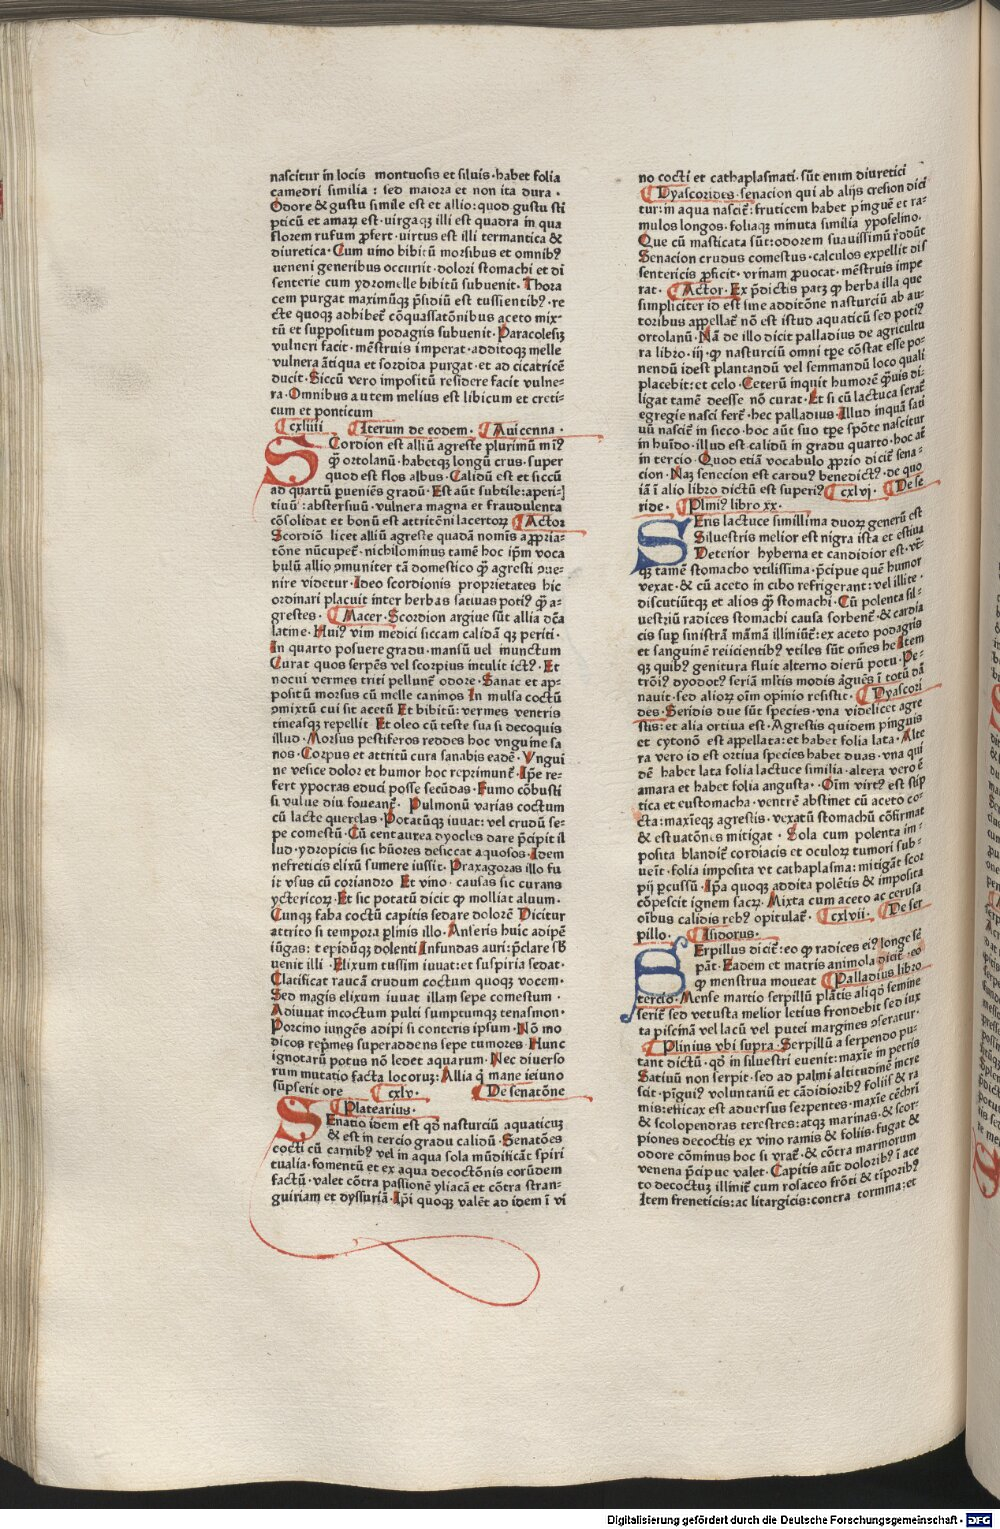 nascitur in locis montuosis et siluis·habet folia
camedri similia : sed maiora et non ita dura ·
Odore & gustu simile est et allio: quod gustu sti
pticū et amaꝝ est·virgaqꝫ illi est quadra in qua
florem rufum ꝓfert·virtus est illi termantica &
diuretica·Cum vino bibitū morsibus et omnibꝰ
ueneni generibus occurrit·dolori stomachi et di
senterie cum ydromelle bibitū subuenit·Thora
cem purgat maximūqꝫ p̄sidiū est tussientibꝰ·re
cte quoqꝫ adhibet᷑ cōquassatōnibus aceto mix⸗
tū et suppositum podagris subuenit·Paracolesiꝫ
vulneri facit·mēstruis imperat·additoqꝫ melle
vulnera ātiqua et sordida purgat·et ad cicatricē
ducit·Siccū vero impositū residere facit vulne⸗
ra·Omnibus autem melius est libicum et creti⸗
cum et ponticum
cxliiii Iterum de eodem· Auicenna·
SCordion est alliū agreste plurimū mīꝰ
qȝ ortolanū·habetqꝫ longū crus·super
quod est flos albus·Calidū est et siccū
ad quartū pueniēs gradū·Est aūt subtile:aperi⸗
tiuū:abstersiuū·vulnera magna et fraudulenta
cōsolidat et bonū est attritēni lacertoꝝ Actor
Scordiō licet alliū agreste quadā nomis apꝓria⸗
tōne nūcupet᷑·nichilominus tamē hoc ip̄m voca
bulū allio ꝯmuniter tā domestico qȝ agresti ꝯue⸗
nire videtur·Ideo scordionis proprietates hic
ordinari placuit inter herbas satiuas potiꝰ qȝ a⸗
grestes· Macer·Scordion argiue sūt allia dc̄a
latine·Huiꝰ vim medici siccam calidā qꝫ periti·
In quarto posuere gradu·mansū uel inunctum
Curat quos serpēs vel scorpius intulit ictꝰ·Et
nocui vermes triti pellunt᷑ odore·Sanat et ap⸗
positū morsus cū melle caninos In mulsa coctū
ꝯmixtū cui sit acetū Et bibitū: vermes ventris
tineasqꝫ repellit Et oleo cū teste sua si decoquis
illud·Morsus pestiferos reddes hoc vnguine sa
nos·Corpus et attritū cura sanabis eadē·Vngui
ne vesice dolor et humor hoc reprimunt᷑·Ip̄e re⸗
fert ypocras educi posse secūdas·Fumo cōbusti
si vulue diu foueant᷑· Pulmonū varias coctum
cū lacte querelas·Potatūqꝫ iuuat: vel crudū se⸗
pe comestū·Cū centaurea dyocles dare p̄cipit il
lud·ydropicis sic hūores desiccat aquosos·Idem
nefreticis elixū sumere iussit·Praxagoras illo fu
it vsus cū coriandro Et vino·causas sic curans
yctericoꝝ·Et sic potatū dicit qȝ molliat aluum·
Cunqꝫ faba coctū capitis sedare dolorē Dicitur
attrito si tempora ꝑlinis illo·Anseris huic adipē
iūgas: tepidūqꝫ dolenti Infundas auri:p̄clare sb̄
uenit illi·Elixum tussim iuuat: et suspiria sedat·
Clatificat raucā crudum coctum quoqꝫ vocem·
Sed magis elixum iuuat illam sepe comestum·
Adiuuat incoctum pulti sumptumqꝫ tenasmon·
Porcino iungēs adipi si conteris ipsum·Nō mo
dicos rep̄mes superaddens sepe tumores·Hunc
ignotaꝝ potus nō ledet aquarum·Nec diuerso
rum mutatio facta locoruꝫ: Allia q̄ mane ieiuno
sūpserit ore cxlv· De senatōne
Platearius·
SEnatio idem est qd̄ nasturciū aquaticuꝫ
& est in tercio gradu calidū·Senatōes
cocti cū carnibꝰ vel in aqua sola mūdificāt spiri
tualia·fomentū et ex aqua decoctōnis eorūdem
factū·valet cōtra passionē yliacā et cōtra stran⸗
guiriam et dyssuriā·Ip̄i quoqꝫ valēt ad idem ī vi
no cocti et cathaplasmati·sūt enim diuretici
Dyascorides·senacion qui ab alijs cresion dici
tur:in aqua nascit᷑:fruticem habet pinguē et ra⸗
mulos longos·foliaqꝫ minuta similia yposelino·
Que cū masticata sūt:odorem suauissimū r̄ddūt
Senacion crudus comestus·calculos expellit dis
sentericis ꝓficit·vrinam ꝓuocat·mēstruis impe
rat· Actor·Ex p̄dictis patꝫ qȝ herba illa que
simpliciter id est sine additōne nasturciū ab au⸗
toribus appellat᷑ nō est istud aquaticū sed potiꝰ
ortolanū·Nā de illo dicit palladius de agricultu
ra libro·iij·qȝ nasturciū omni tp̄e cōstat esse po⸗
nendū idest plantandū vel semmandū loco quali
placebit:et celo·Ceterū inquit humorē q̄uis di⸗
ligat tamē deesse nō curat·Et si cū lactuca serat᷑
egregie nasci fert᷑·hec palladius·Illud inquā sati
uū nascit᷑ in sicco·hoc aūt suo tp̄e spōte nascitur
in huīdo·illud est calidū in gradu quarto·hoc aūt
in tercio·Quod etiā vocabulo ꝓprio dicit᷑ sena⸗
cion·Naꝫ senecion est carduꝰ benedictꝰ·de quo
iā ī alio libro dictū est superiꝰ cxlvj· De se
ride· Plinīꝰ libro xx·
SEris lactuce simillima duoꝝ generū est
Siluestris melior est nigra ista et estiua
Deterior hyberna et candidior est·vt̄⸗
qꝫ tamē stomacho vtilissima·p̄cipue quē humor
vexat·& cū aceto in cibo refrigerant: vel illite·
discutiūtqꝫ et alios qȝ stomachi·Cū polenta sil⸗
uestriū radices stomachi causa sorbent᷑·& cardia
cis sup sinistrā māmā illiniūt᷑:ex aceto podagris
et sanguinē reiicientibꝰ vtiles sūt om̄es he Item
qꝫ quibꝰ genitura fluit alterno dierū potu·Pe⸗
trōiꝰ dyodotꝰ seriā ml̄tis modis āguēs ī totū dā
nauit·sed alioꝝ oīm opinio resistit· Dyascori
des·Seridis due sūt species·vna videlicet agre
stis: et alia ortiua est·Agrestis quidem pinguis
et cytonō est appellata: et habet folia lata·Alte
ra vero id est ortiua species habet duas·vna qui
dē habet lata folia lactuce similia·altera vero ē
amara et habet folia angusta·Oīm virtꝰ est stip
tica et eustomacha·ventrē abstinet cū aceto co⸗
cta: maxīeqꝫ agrestis·vexatū stomachū cōfirmat
& estuatōnes mitigat·Sola cum polenta im⸗
posita blandit᷑ cordiacis et oculoꝝ tumori sub⸗
uēit·folia imposita vt cathaplasma:mitigāt scor
pij ꝑcussū·Ip̄a quoqꝫ addita polētis & imposita
cōpescit ignem sacꝝ·Mixta cum aceto ac cerusa
oībus calidis rebꝰ opitulat᷑· cxlvii· De ser
pillo· Isidorus·
SErpillus dicit᷑:eo qȝ radices eiꝰ longe s̄e
pāt·Eadem et matris animola dicit᷑·eo
qȝ menstrua moueat Palladius libro
tercio·Mense martio serpillū plātis aliqd̄ semine
serit᷑ sed vetusta melior letius frondebit sed iux
ta piscinā vel lacū vel putei margines ꝯseratur·
Plinius vbi supra·Serpillū a serpendo pu⸗
tant dictū·qd̄ in silvestri euenit: maxīe in petris
Satiuū non serpit·sed ad palmi altitudinē incre
scit·pīguiꝰ voluntariū et cādidioribꝰ foliis & ra
mis: efficax est aduersus serpentes·maxīe cēchrī
& scolopendras terestres: atqꝫ marinas·& scor⸗
piones decoctis ex vino ramis & foliis·fugat &
odore cōminus hoc si vrat᷑·& cōtra marmorum
venena p̄cipue valet·Capitis aūt doloribꝰ ī ace
to decoctuꝫ illinit᷑ cum rosaceo frōti & tīporibꝰ
Item freneticis: ac litargicis: contra tormina: et
Digitalisierung gefördert durch die Deutsche Forschungsgemeinschaft - DFG